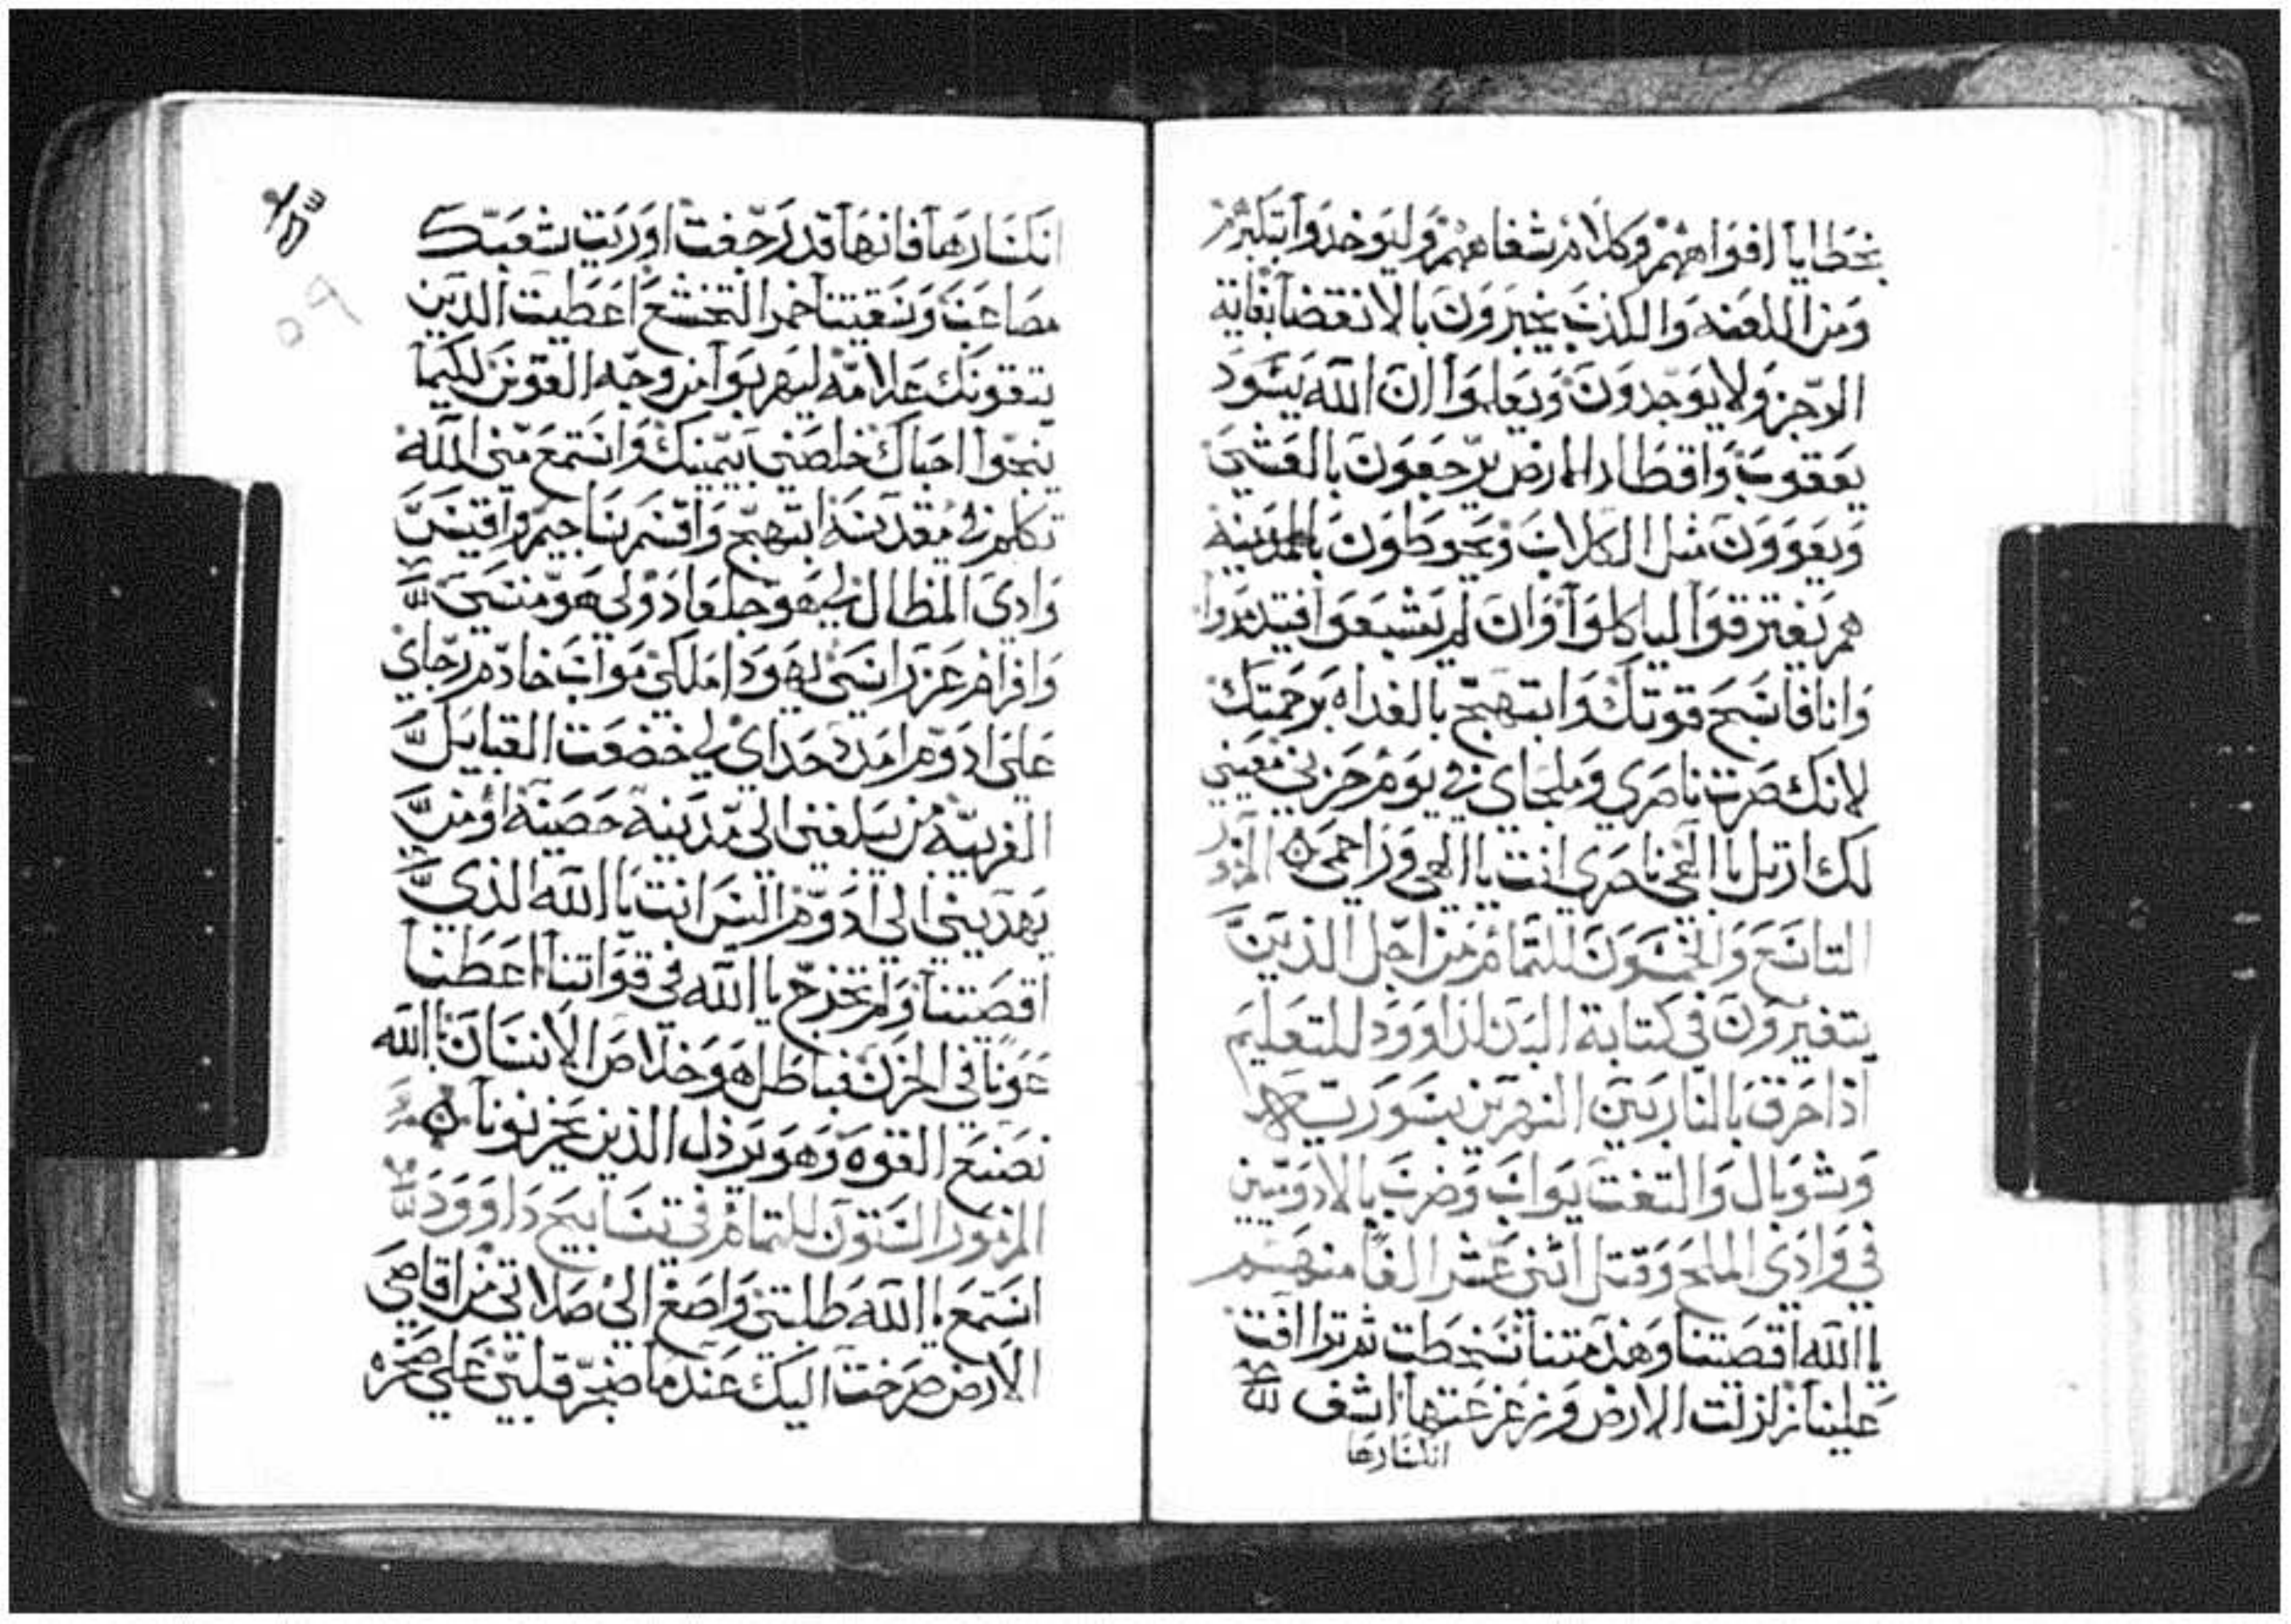 بخطايا افواههم وكلام شفاههم وليوخدوا بتكبرهم
ومن اللعنه والكذب يخبرون بالانقضا بغاية
الرجز ولا يوجدون ويعلموا ان الله يسود
يعقوب واقطار الارض يرجعون بالعشي
ويعوون مثل الكلاب ويحوطون بالمدينة
هم يفترقوا لياكلوا وان لم يشبعوا فيتذمروا
وانا فاسبح قوتك وابتهج بالغداه برحمتك
لانك صرت ناصري وملجاي في يوم حزني معيني
لك ارتل يا الهي ناصري انت يا الهي وراحمي المزمور
التاسع والخمسون للتمام من اجل الذين
يتغيرون في كتابة البدن لداوود للتعليم
اذا حرق بالنار بين النهرين بسورية
وسوبال والتفت يواب وضرب بالادوميين
في وادي الملح وقتل اثني عشر الفا منهم
يا الله اقصيتنا وهدمتنا سخطت ثم تراافت
علينا زلزلت الارض وزعزعتها اشف
انكسارها
انكسارها فانها قد رجفت اوريت شعبك
مصاعب وسقيتنا خمر التخشع اعطيت الذين
يتقونك علامه ليهربوا من وجه القوس لكيما
ينجوا احباك خلصني بيمينك واستمع مني الله
تكلم في مقدسه ابتهج واقسم ساجيم واقيس
وادي المظال لي هو جلعاد ولي هو منسي
وافرام عز راسي يهودا ملكي مواب خادم رجاي
على ادوم امد حداي لي خضعت القبايل
الغريبة من يبلغني الى مدينة حصينة او من
يهديني الى ادوم اليس انت يا الله الذي
اقصيتنا ولم تخرج يا الله في قواتنا اعطنا
عونا في الحزن فباطل هو خلاص الانسان بالله
نصنع القوة وهو يرذل الذين يحزنونا
المزمور الستون للتمام في تسابيح داوود
استمع يا الله طلبتي واصغ الى صلاتي من اقاصي
الارض صرخت اليك عند ما ضجر قلبي على صخره
٥٩